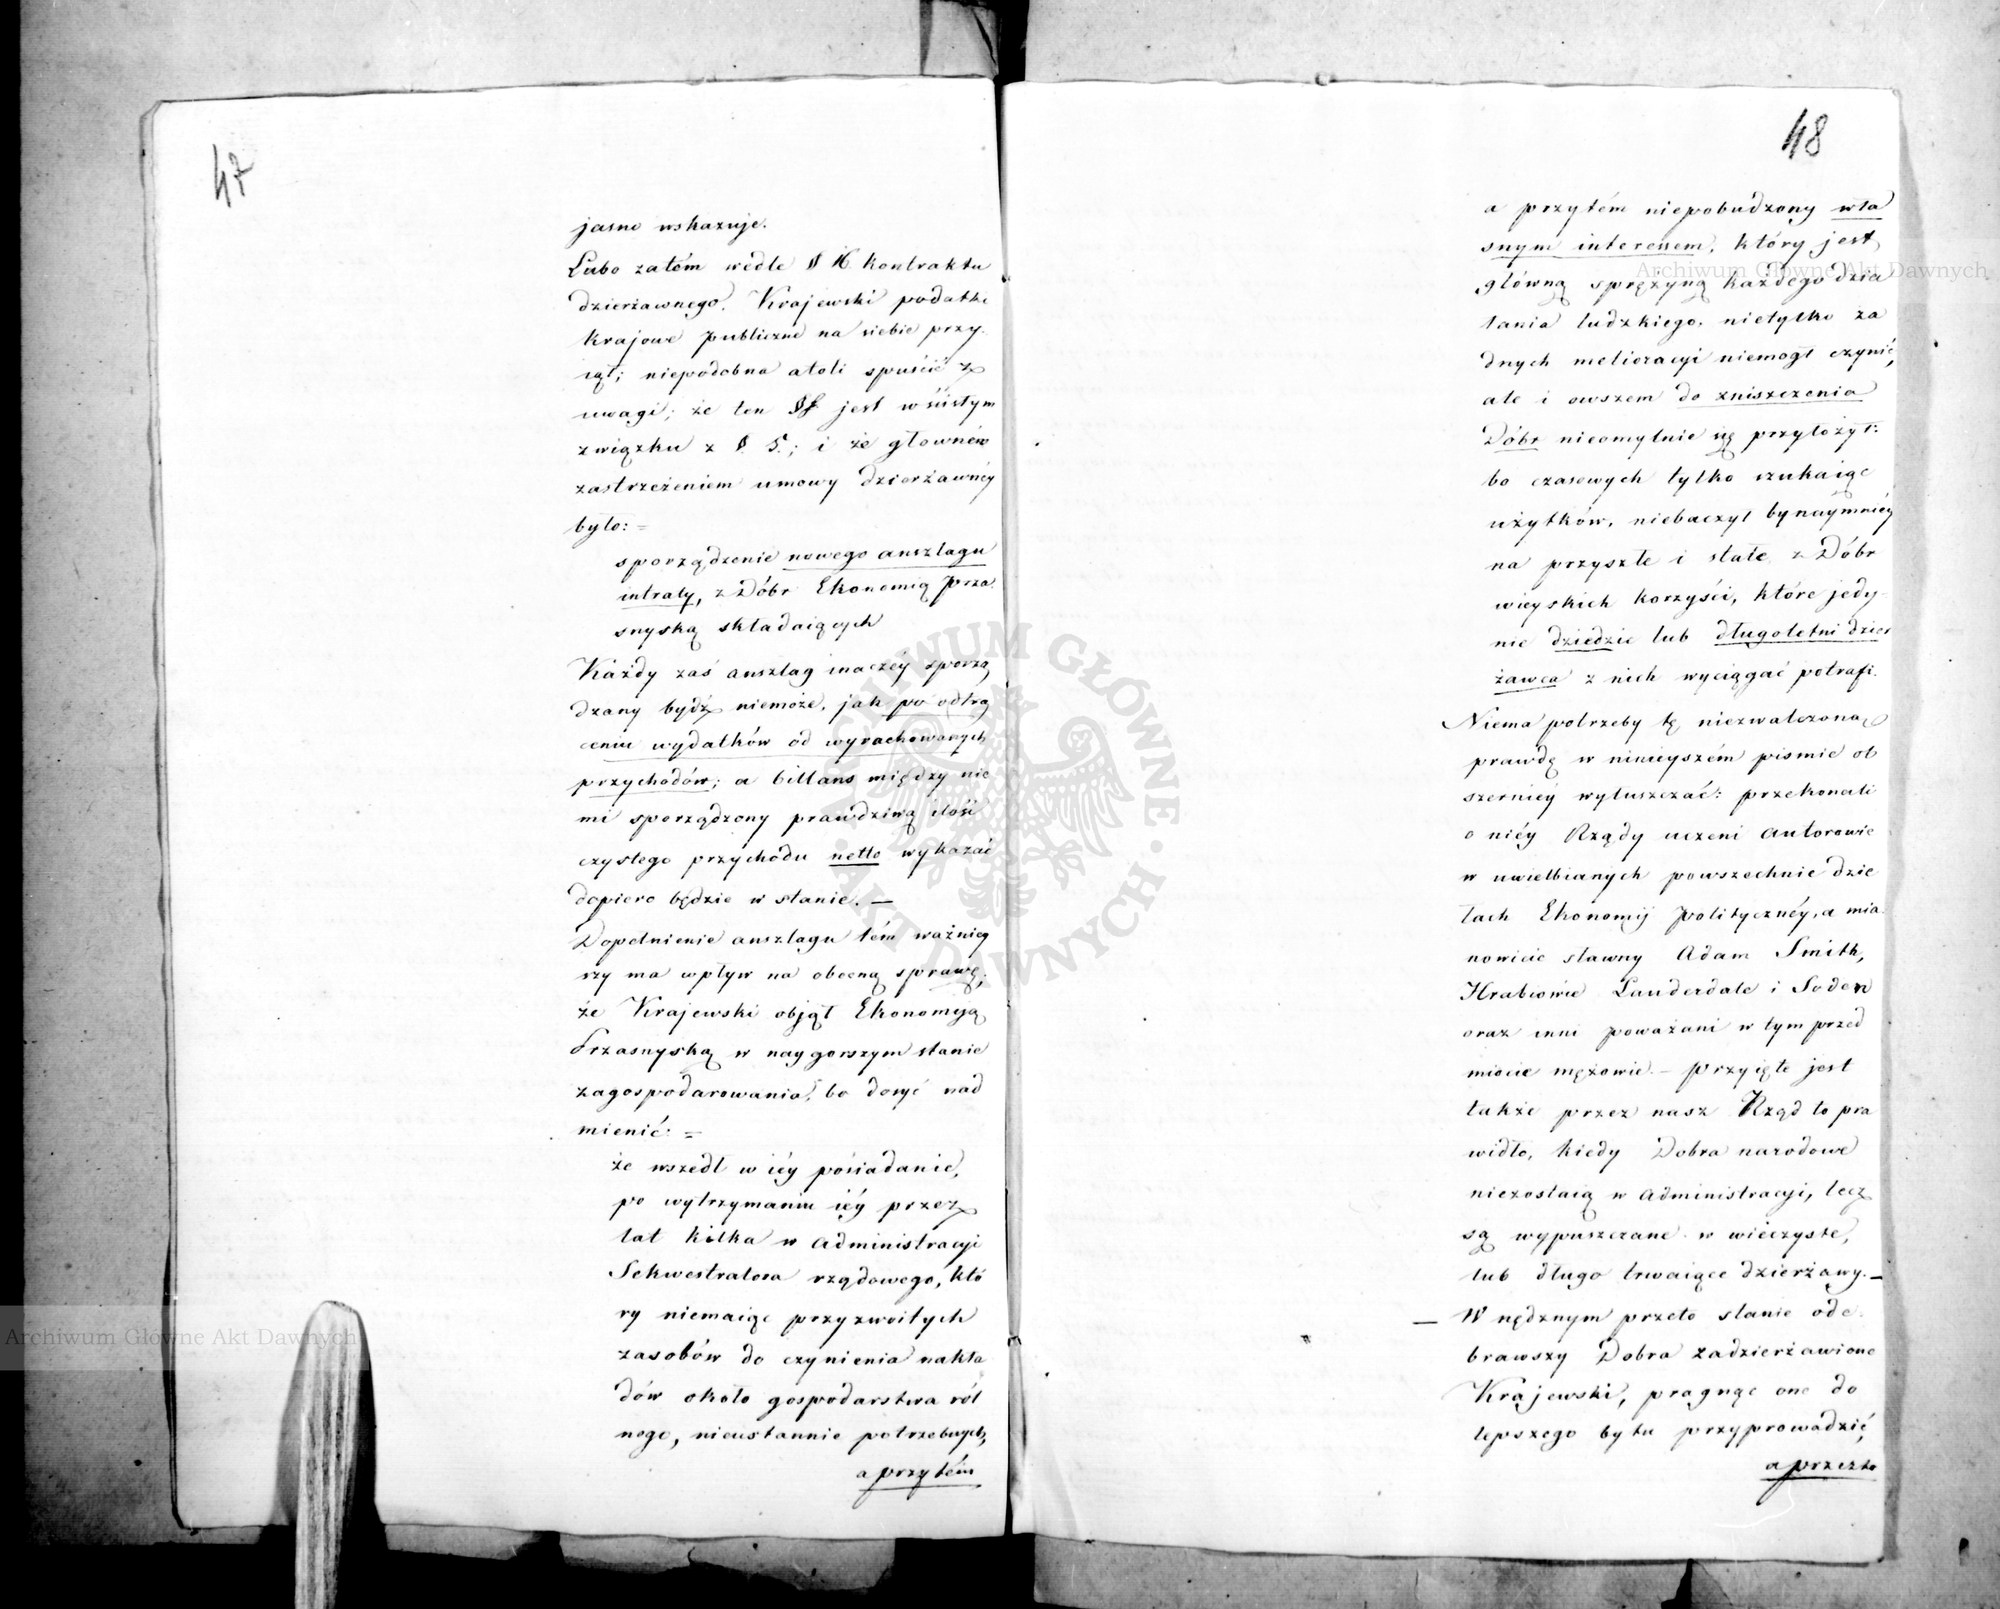 47
jasno wskazuje.
Lubo zatém wedle § 16 kontraktu
dzierżawnego. Krajewski podatki
krajowe publiczne na siebie przy-
iął; niepodobna atoli spuścić z
uwagi; że ten §f jest w śćisłym
związku z §. 5.; i że głowném
zastrzeżeniem umowy dzierżawnéy
było: =
sporządzenie nowego anszlagu
intraty, z Dóbr Ekonomią Prza-
snyską składaiących
Każdy zaś anszlag inaczéy sporzą
dzany bydź niemoże, jak po odtrą
ceniu wydatków od wyrachowanych
przychodów; a billans między nie
mi sporządzony prawdziwą ilość
czystego przychodu netto wykazać
dopiero będzie w stanie. —
Dopełnienie anszlagu tém ważniey
szy ma wpływ na obecną sprawę;
że Krajewski objął Ekonomiją
Przasnyską w naygorszym stanie
zagospodarowania, bo dosyć nad
mienić: =
że wszedł w iéy pośiadanie,
po wytrzymaniu iéy przez
lat kilka w administracyi
Sekwestratora rządowego, któ
ry niemaiąc przyzwoitych
zasobów do czynienia nakła
dów około gospodarstwa ról
nego, nieustannie potrzebnych,
a przytém
48
a przytém niepobudzony wła
snym interessem, który jest
główną sprężyną każdego dzia
łania ludzkiego, nietylko ża
dnych melioracyi niemógł czynić,
ale i owszem do zniszczenia
Dóbr nieomylnie się przyłożył:
bo czasowych tylko szukaiąc
użytków, niebaczył bynaymniéy
na przyszłe i stałe z Dóbr
wieyskich korzyści, które jedy-
nie dziedzic lub długoletni dzier
żawca z nich wyciągać potrafi.
Niema potrzeby tę niezwalczoną
prawdę w ninieyszém pismie ob
szerniéy wyłuszczać: przekonali
o niéy Rządy uczeni autorowie
w uwielbianych powszechnie dzie
łach Ekonomij politycznéy, a mia-
nowicie sławny Adam Smith,
Hrabiowie Lauderdale i Soden
oraz inni poważani w tym przed
miocie mężowie. — przyięte jest
także przez nasz Rząd to pra
widło, kiedy Dobra narodowe
niezostaią w administracyi, lecz
są wypuszczane w wieczyste,
lub długo trwaiące dzierżawy. —
— W nędznym przeto stanie ode-
brawszy Dobra zadzierżawione
Krajewski, pragnąc one do
lepszego bytu przyprowadzić,
a przezto
Archiwum Główne Akt Dawnych
Archiwum Główne Akt Dawnych
ARCHIWUM GŁÓWNE · AKT DAWNYCH ·